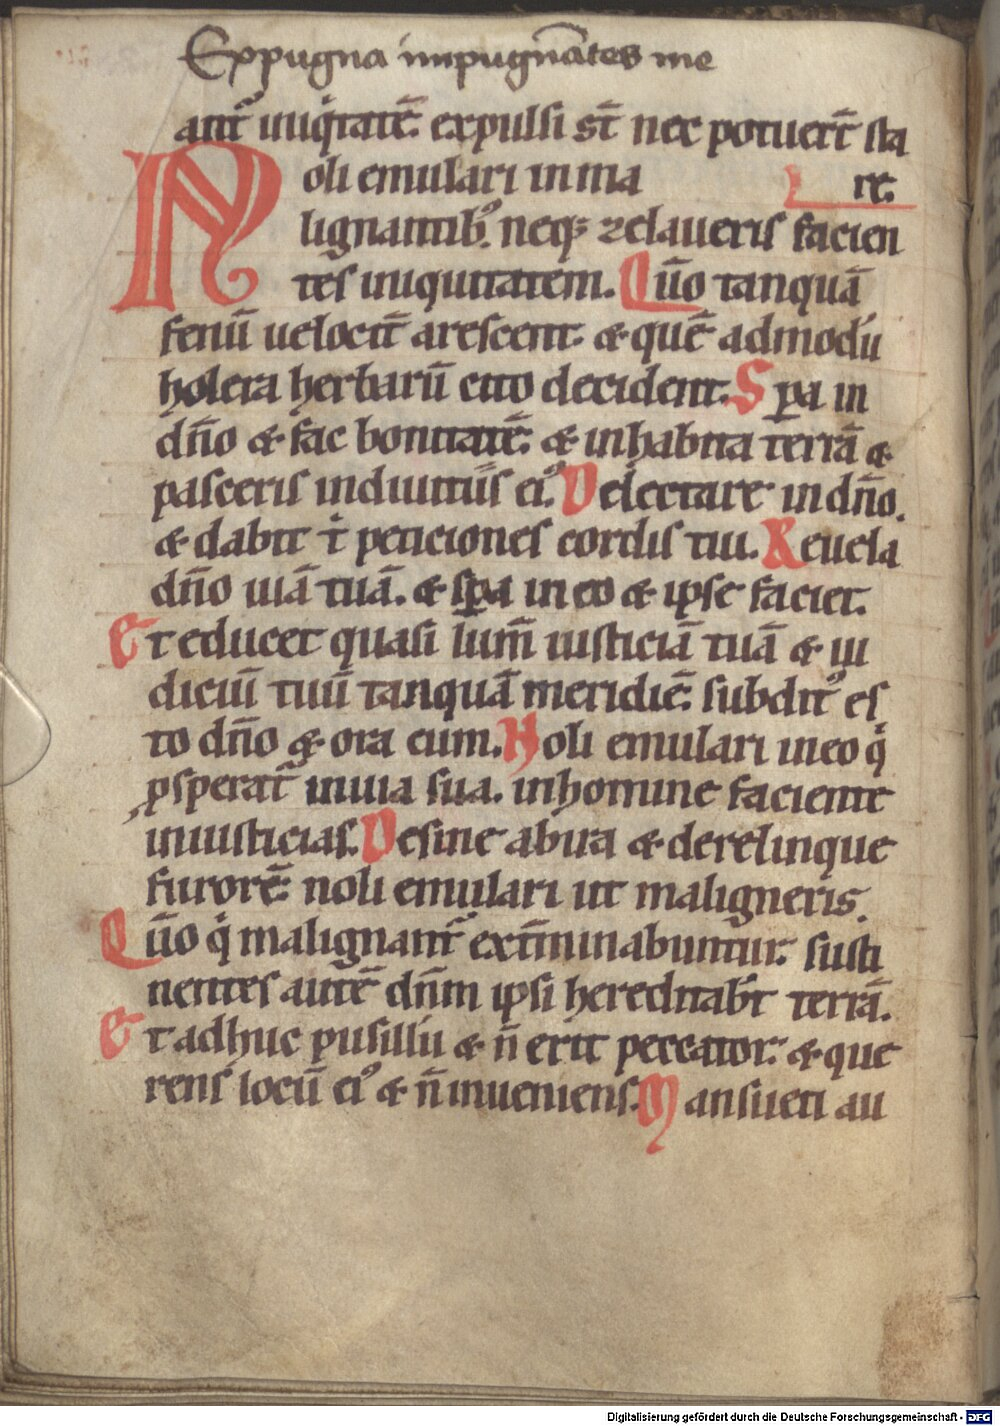 Expugna impugnātes me
antᷣ iniqͥtatē. expulsi st̄ nec potuer̄t sta
Noli emulari in ma re.
lignantibꝰ. neqꝫ zelaueris facien
tes iniquitatem. Qūo tanquā
fenū uelocit̄ arescent. & quē admodū
holera herbarū cito decident. Sꝑa in
dn̄o & fac bonitatē. & inhabita terrā &
pasceris in diuitiis eiꝰ. Delectare in dn̄o.
& dabit tͥ peticiones cordis tui. Reuela
dn̄o uiā tuā. & sꝑa in eo & ipse faciet.
Et educet quasi lum̄ iusticiā tuā & iu
diciū tuū tanquā meridiē. subditꝰ es
to dn̄o & ora eum. Noli emulari in eo qͥ
ꝓsperatᷣ in uia sua. in homine faciente
iniusticias. Desine ab ira & derelinque
furorē. noli emulari ut maligneris.
Qūo qͥ malignantᷣ ext̄minabuntur. susti
nentes autē dn̄m ipsi hereditab̄t terrā.
Et adhuc pusillū & n̄ erit peccator. & que
rens locū eiꝰ & n̄ inueniens. Mansueti au
Digitalisierung gefördert durch die Deutsche Forschungsgemeinschaft - DFG